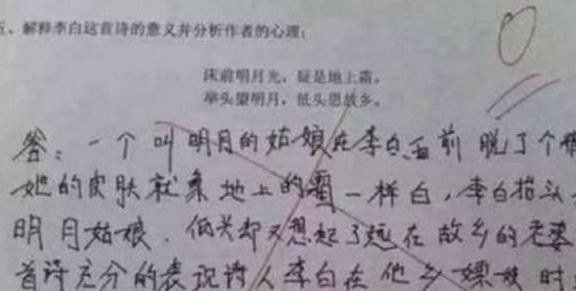 、解释李白这首诗的意义并分析作者的心理：
床前明月光，疑是地上霜。
举头望明月，低头思故乡。
0
答：一个叫明月的姑娘在李白面前脱了个精
她的皮肤就象地上的霜一样白，李白抬头
明月姑娘．低头却又想起了远在故乡的老婆
首诗充分的表现诗人李白在他乡嫖妓时